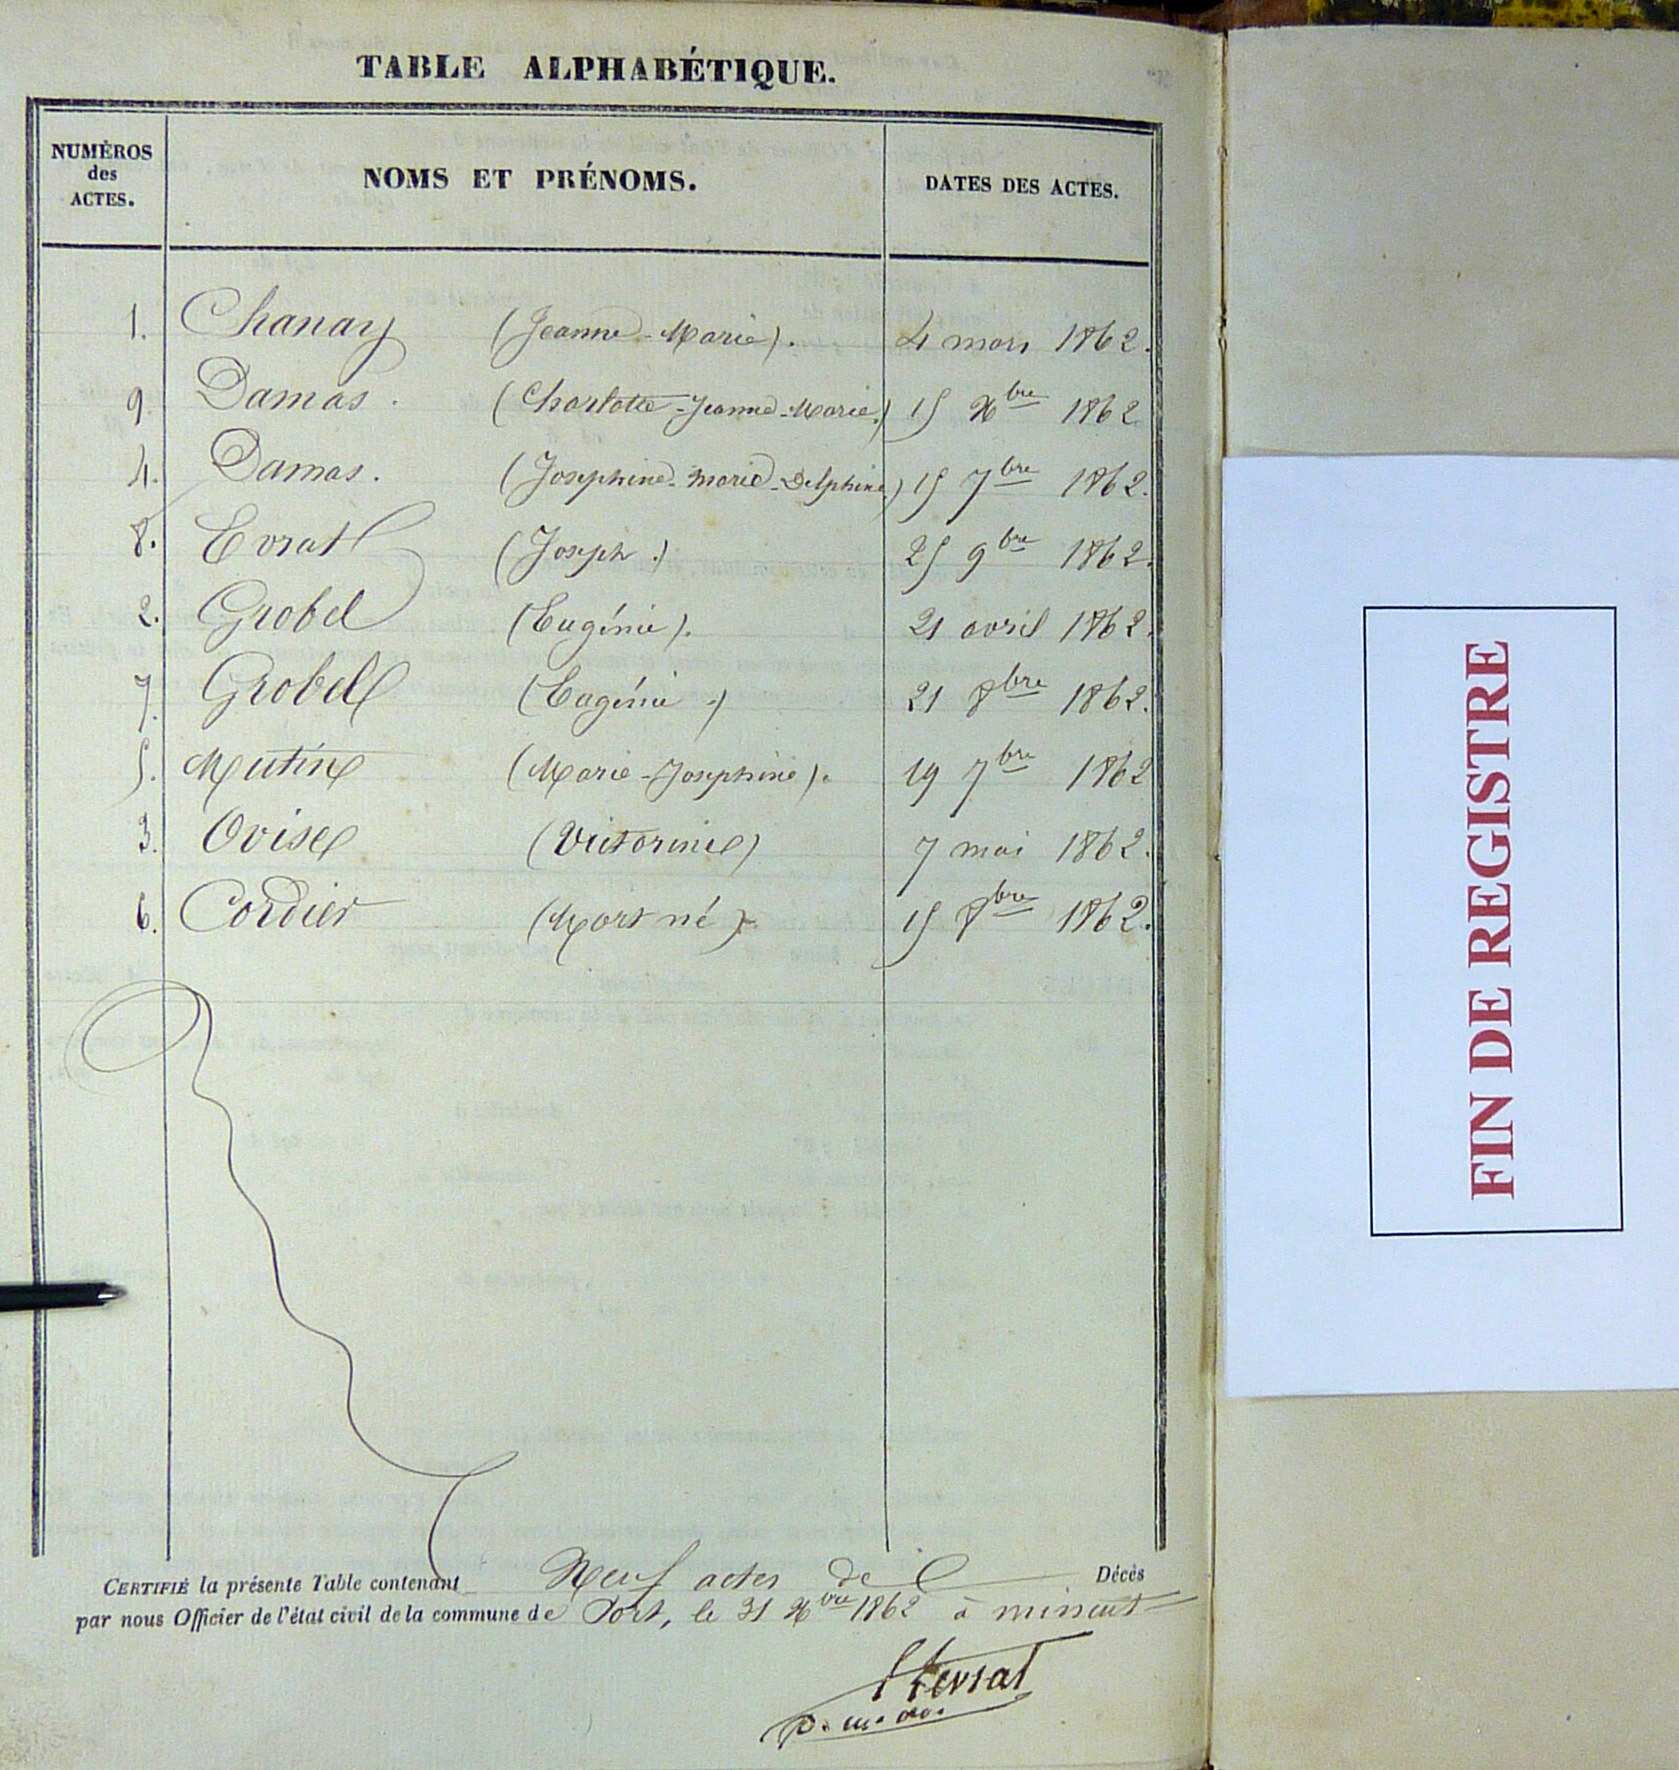 TABLE ALPHABÉTIQUE.
NUMÉROS des ACTES. NOMS ET PRÉNOMS. DATES DES ACTES.
1. Chanay (Jeanne-Marie). 4 mars 1862.
9 Damas. (Charlotte-Jeanne-Marie.) 15 Xbre 1862
4. Damas. (Josephine-Marie-Delphine) 15 7bre 1862.
8. Evrat (Joseph.) 25 9bre 1862.
2. Grobel (Eugénie). 21 avril 1862.
7. Grobel (Eugénie.) 21 8bre 1862.
5. Mutin (Marie-Josephine). 19 7bre 1862
3. Ovise (Victorine) 7 mai 1862.
6. Cordier (Mort né) 15 8bre 1862.
CERTIFIÉ la présente Table contenant Neuf actes de Décès
par nous Officier de l'état civil de la commune de Port, le 31 Xbre 1862 à minuit
FIN DE REGISTRE